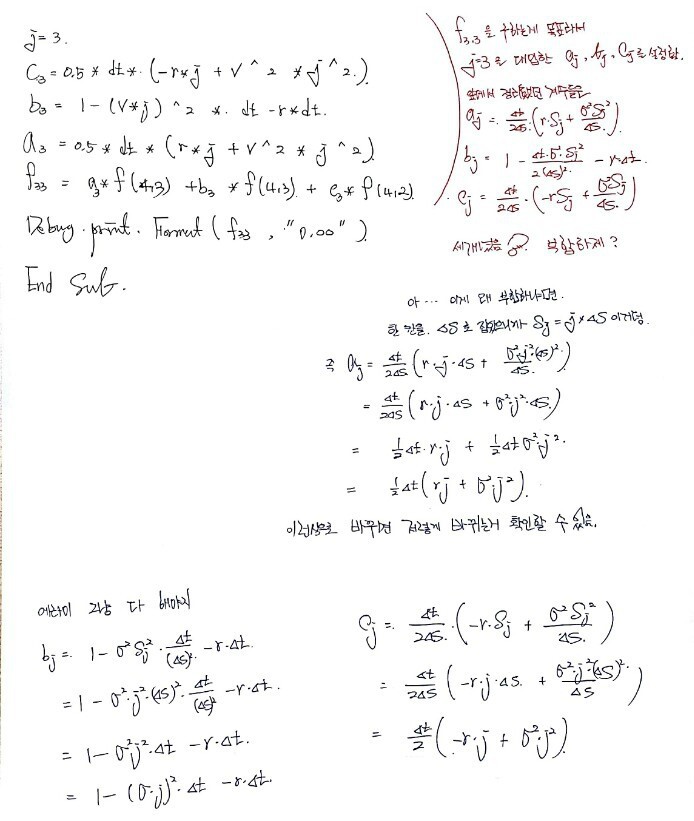 j=3.
C₃ = 0.5 * dt * (-r*j + V^2 * j^2.)
b₃ = 1 - (V*j)^2 *. dt - r*dt.
a₃ = 0.5 * dt * (r*j + V^2 * j^2)
f₃₃ = a₃ * f(4,3) + b₃ * f(4,3) + c₃ * f(4,2)
Debug.print. Format(f₃₃, "0.00")
End Sub.
f₃.₃을 구하는게 목표라서
j=3을 대입한 aj, bj, Cj를 설정함.
앞에서 정리했던 계수들은
aj = Δt/2ΔS.(r.Sj + σ²Sj²/ΔS.)
bj = 1 - Δt.σ².Sj²/2(ΔS)². - r.Δt.
Cj = Δt/2ΔS.(-rSj + σ²Sj²/ΔS)
부합하제?
아... 이게 왜 부합하냐면.
한 칸을. ΔS로 잡았으니까 Sj = j*ΔS 이거덩.
즉 aj = Δt/2ΔS(r.j.ΔS + σ².j².(ΔS)²/ΔS.)
= Δt/2ΔS(r.j.ΔS + σ².j².ΔS.)
= 1/2Δt.r.j + 1/2Δtσ².j².
= 1/2Δt(rj + σ².j²).
이런식으로 바꾸면 저렇게 바뀌는거 확인할 수 있음.
그냥 다 해야지
bj = 1 - σ²Sj².Δt/(ΔS)². - r.Δt.
= 1 - σ².j².(ΔS)².Δt/(ΔS)² - r.Δt.
= 1 - σ²j².Δt - r.Δt.
= 1 - (σ.j)².Δt - r.Δt.
Cj = Δt/2ΔS.(-r.Sj + σ²Sj²/ΔS.)
= Δt/2ΔS(-r.j.ΔS. + σ².j².(ΔS)²/ΔS)
= Δt/2(-r.j + σ².j²)